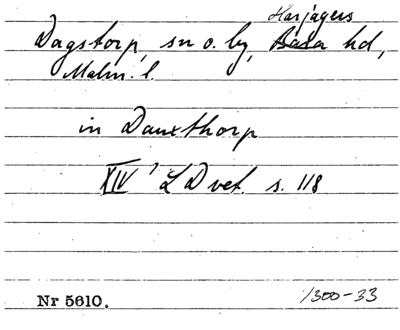 Harjagers
Dagstorp, sn o. by, Bara hd,
Malm. l.
in Dauxthorp
XIV' LD vet. s. 118
Nr 5610.
1300-33